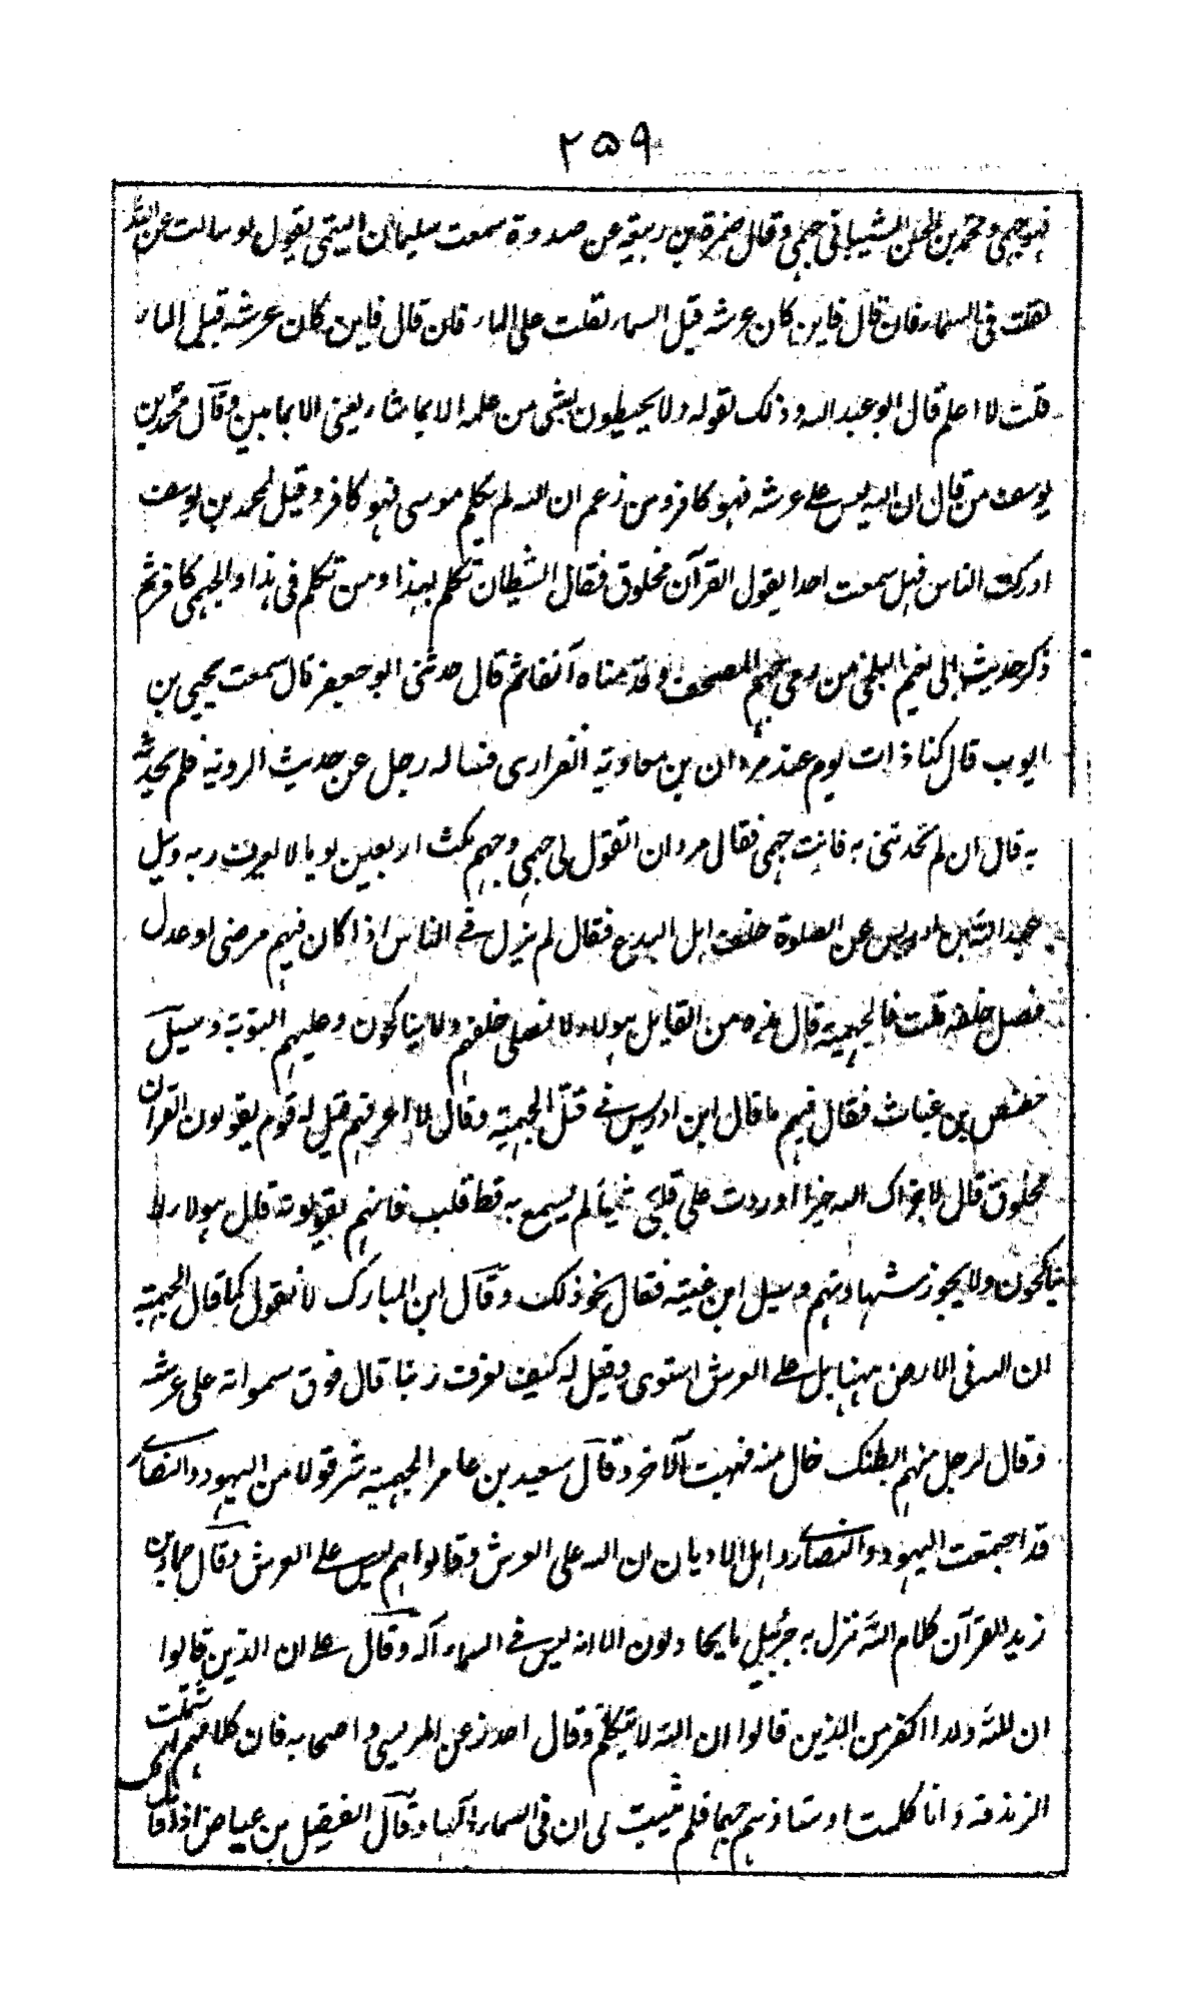 ۲۵۹
فهو جهمي و محمد بن الحسن الشيباني جهمي وقال ضمرة بن ربيعة عن صدوة سمعت سليمان التيمي يقول لو سالت عن الله
لقلت في السماء فان قال فاين كان عرشه قبل السماء لقلت على الماء فان قال فاين كان عرشه قبل الماء
قلت لا اعلم قال ابو عبد الله وذلك لقوله ولا يحيطون بشي من علمه الا بما شاء يعني الا بما بين وقال محمد بن
يوسف من قال ان الله ليس على عرشه فهو كافر ومن زعم ان الله لم يكلم موسى فهو كافر وقيل لمحمد بن يوسف
ادركت الناس فهل سمعت احدا يقول القرآن مخلوق فقال الشيطان تكلم بهذا ومن تكلم في هذا والجهمي كافر ثم
ذكر حديث ابي نعيم البلخي من رمي جهم المصحف وقد قدمناه آنفا ثم قال حدثني ابو جعفر قال سمعت يحيى بن
ايوب قال كنا ذات يوم عند مروان بن معاوية الفزاري فساله رجل عن حديث الروية فلم يحدثه
به قال ان لم تحدثني به فانت جهمي فقال مروان اتقول لي جهمي وجهم مكث اربعين يوما لا يعرف ربه وسيل
عبد الله بن ادريس عن الصلوة خلف اهل البدع فقال لم يزل في الناس اذا كان فيهم مرضي او عدل
فصل خلفه قلت فالجهمية قال هذه من المقاتل هولاء لا نصلي خلفهم ولا يناكحون وعليهم التوبة وسيل
حفص بن غياث فقال فيهم ما قال ابن ادريس في قتل الجهمية وقال لا اعرفهم قيل له قوم يقولون القرآن
مخلوق قال لا جزاك الله خيرا اوردت على قلبي شيئا لم يسمع به قط قلت فانهم يقولونه قال هولاء لا
يناكحون ولا يجوز شهادتهم وسيل ابن عيينة فقال نحو ذلك وقال ابن المبارك لا نقول كما قال الجهمية
ان الله في الارض ههنا بل على العرش استوى وقيل له كيف نعرف ربنا قال فوق سمواته على عرشه
وقال لرجل منهم ابطنك خال منه فبهت الآخر وقال سعيد بن عامر الجهمية شر قولا من اليهود والنصارى
قد اجتمعت اليهود والنصارى واهل الاديان ان الله على العرش وقالوا هم ليس على العرش وقال حماد بن
زيد القرآن كلام الله نزل به جبرئيل ما يحاولون الا انه ليس في السماء اله وقال علي ان الذين قالوا
ان لله ولدا اكفر من الذين قالوا ان الله لا يتكلم وقال احذر عن المريسي واصحابه فان كلامهم
الزندقة وانا كلمت اوستاذهم جهما فلم يثبت لي ان في السماء الها وقال الفضيل بن عياض اذا قال